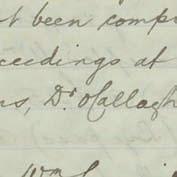 st been compr
ceedings at
ns, Dr O'Callagh
Wm S